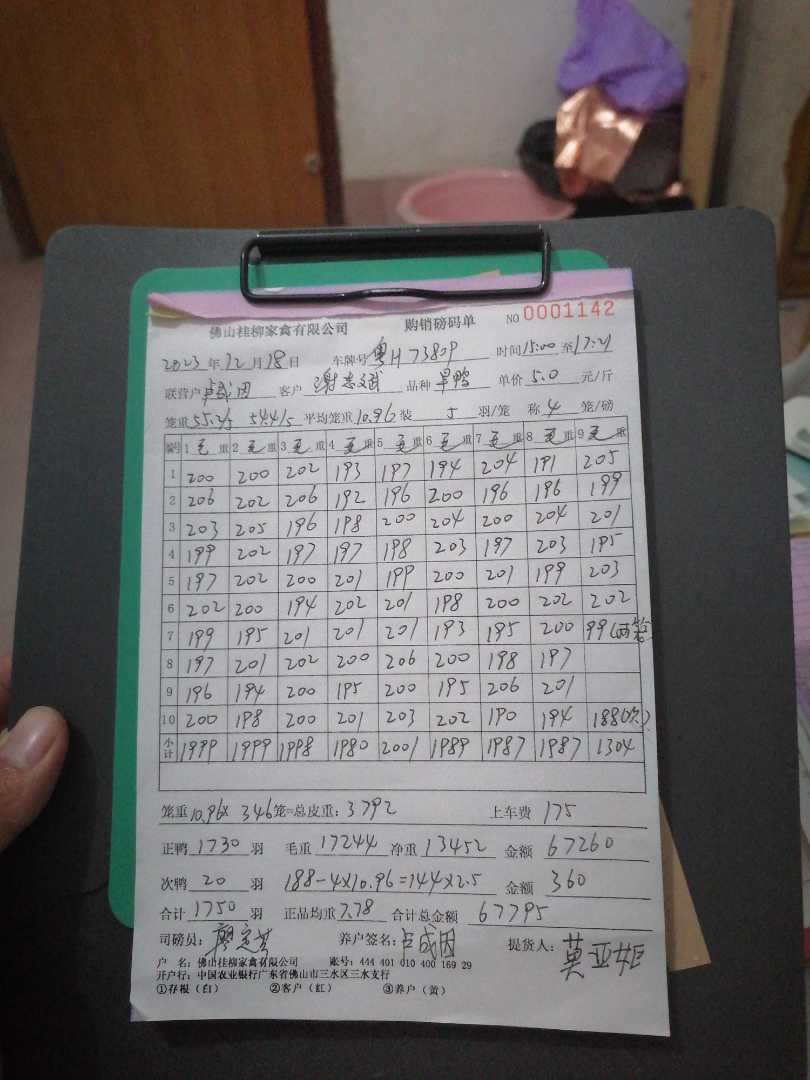 佛山桂柳家禽有限公司 购销磅码单 NO 0001142
2023年12月18日 车牌号 粤H7380P 时间15:00至17:21
联营户 卢成因 客户 谢志斌 品种 旱鸭 单价 5.0 元/斤
笼重 55.2/5 54.4/5 平均笼重 10.96 装 5 羽/笼 称 4 笼/磅
编号 1 毛重 2 毛重 3 毛重 4 毛重 5 毛重 6 毛重 7 毛重 8 毛重 9 毛重
1 200 200 202 193 197 194 204 191 205
2 206 202 206 192 196 200 196 196 199
3 203 205 196 198 200 204 200 204 201
4 199 202 197 197 198 203 197 203 195
5 197 202 200 201 199 200 201 199 203
6 202 200 194 202 201 198 200 202 202
7 199 195 201 201 201 193 195 200 99(两笼)
8 197 201 202 200 206 200 198 197
9 196 194 200 195 200 195 206 201
10 200 198 200 201 203 202 190 194 188(次)
小计 1999 1999 1998 1980 2001 1989 1987 1987 1304
笼重 10.96× 346笼=总皮重：3792 上车费 175
正鸭 1730 羽 毛重 17244 净重 13452 金额 67260
次鸭 20 羽 188-4×10.96=144×2.5 金额 360
合计 1750 羽 正品均重 7.78 合计总金额 67795
司磅员： 养户签名：卢成因 提货人：莫亚姐
户 名：佛山桂柳家禽有限公司 账号：444 401 010 400 169 29
开户行：中国农业银行广东省佛山市三水区三水支行
①存根（白） ②客户（红） ③养户（黄）